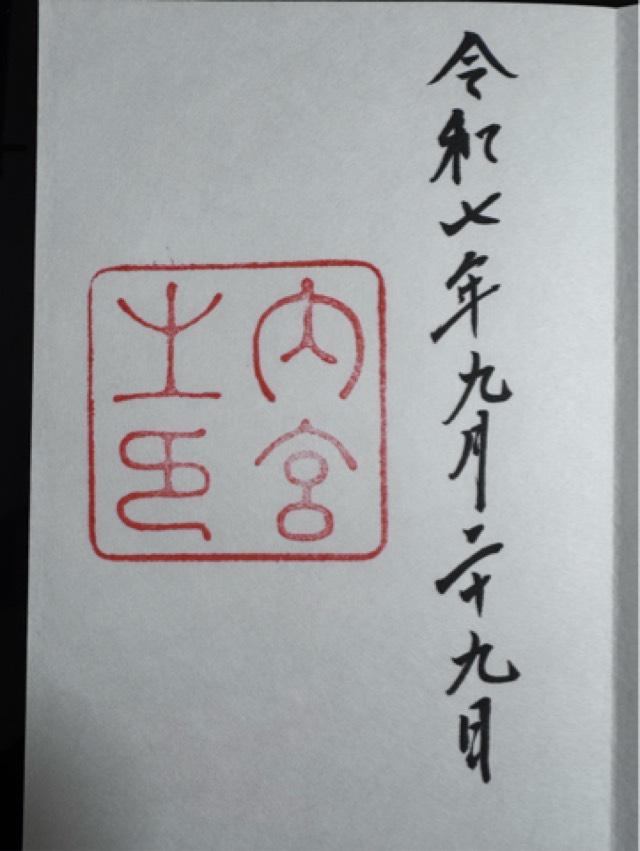 令和七年九月二十九日
内宮
之印